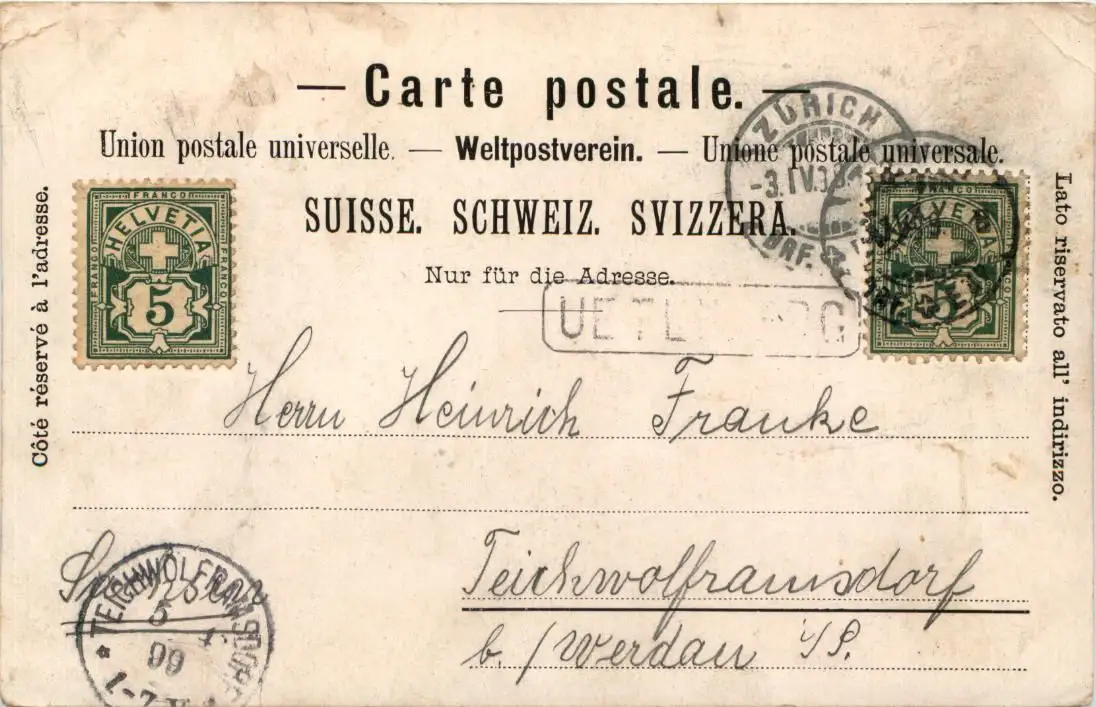 — Carte postale. —
Union postale universelle. — Weltpostverein. — Unione postale universale.
SUISSE. SCHWEIZ. SVIZZERA.
Nur für die Adresse.
Côté réservé à l'adresse.
Lato riservato all' indirizzo.
FRANCO
HELVETIA
FRANCO
FRANCO
5
ZÜRICH
-3.IV.9
FRANCO
HELVETIA
5
Herrn Heinrich Franke
Teichwolframsdorf
b./Werdau i/S.
TEICHWOLFRAMSDORF
5
99